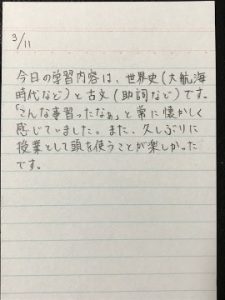 3/11
今日の学習内容は、世界史(大航海
時代など)と古文(助詞など)です。
「こんな事習ったなぁ」と常に懐かしく
感じていました。また、久しぶりに
授業として頭を使うことが楽しかった
です。